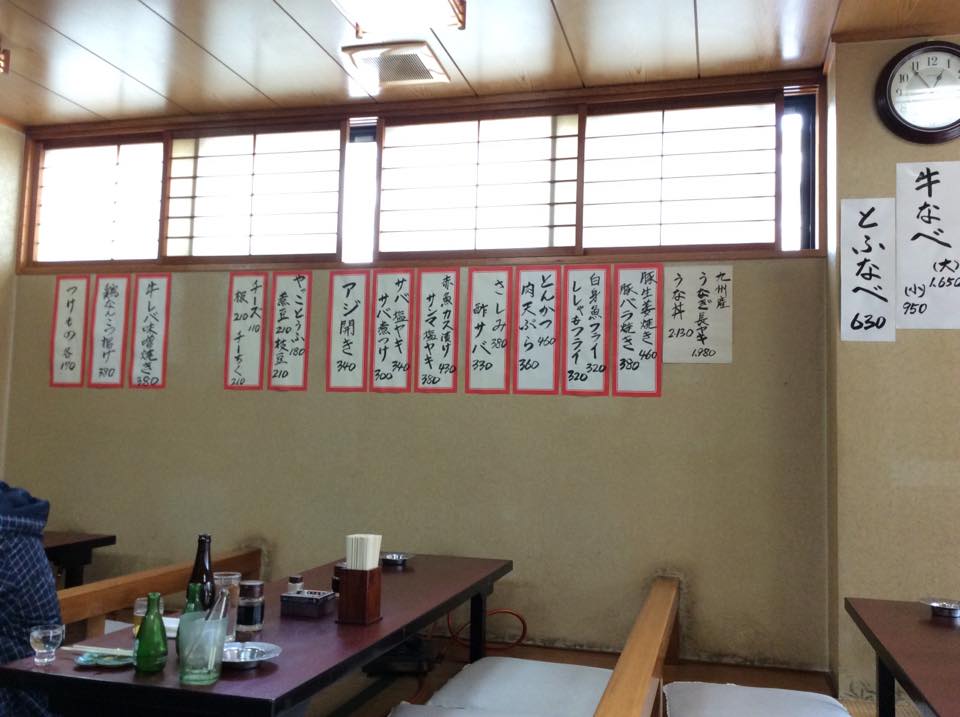 牛なべ
(大)
1.650
(小)
950
とふなべ
630
九州産
うなぎ長ヤキ
1.980
うな丼
2.130
豚生姜焼き
460
豚バラ焼き
380
白身魚フライ
320
ししゃもフライ
320
とんかつ
460
肉天ぷら
360
さしみ
380
酢サバ
330
赤魚カス漬け
430
サンマ塩ヤキ
380
サバ塩ヤキ
340
サバ煮つけ
300
アジ開き
340
やっことうふ
180
煮豆210枝豆
210
チーズ
110
板
210
チーちく
210
牛しべ味噌焼き
380
鶏なんこつ揚げ
380
つけもの各
170